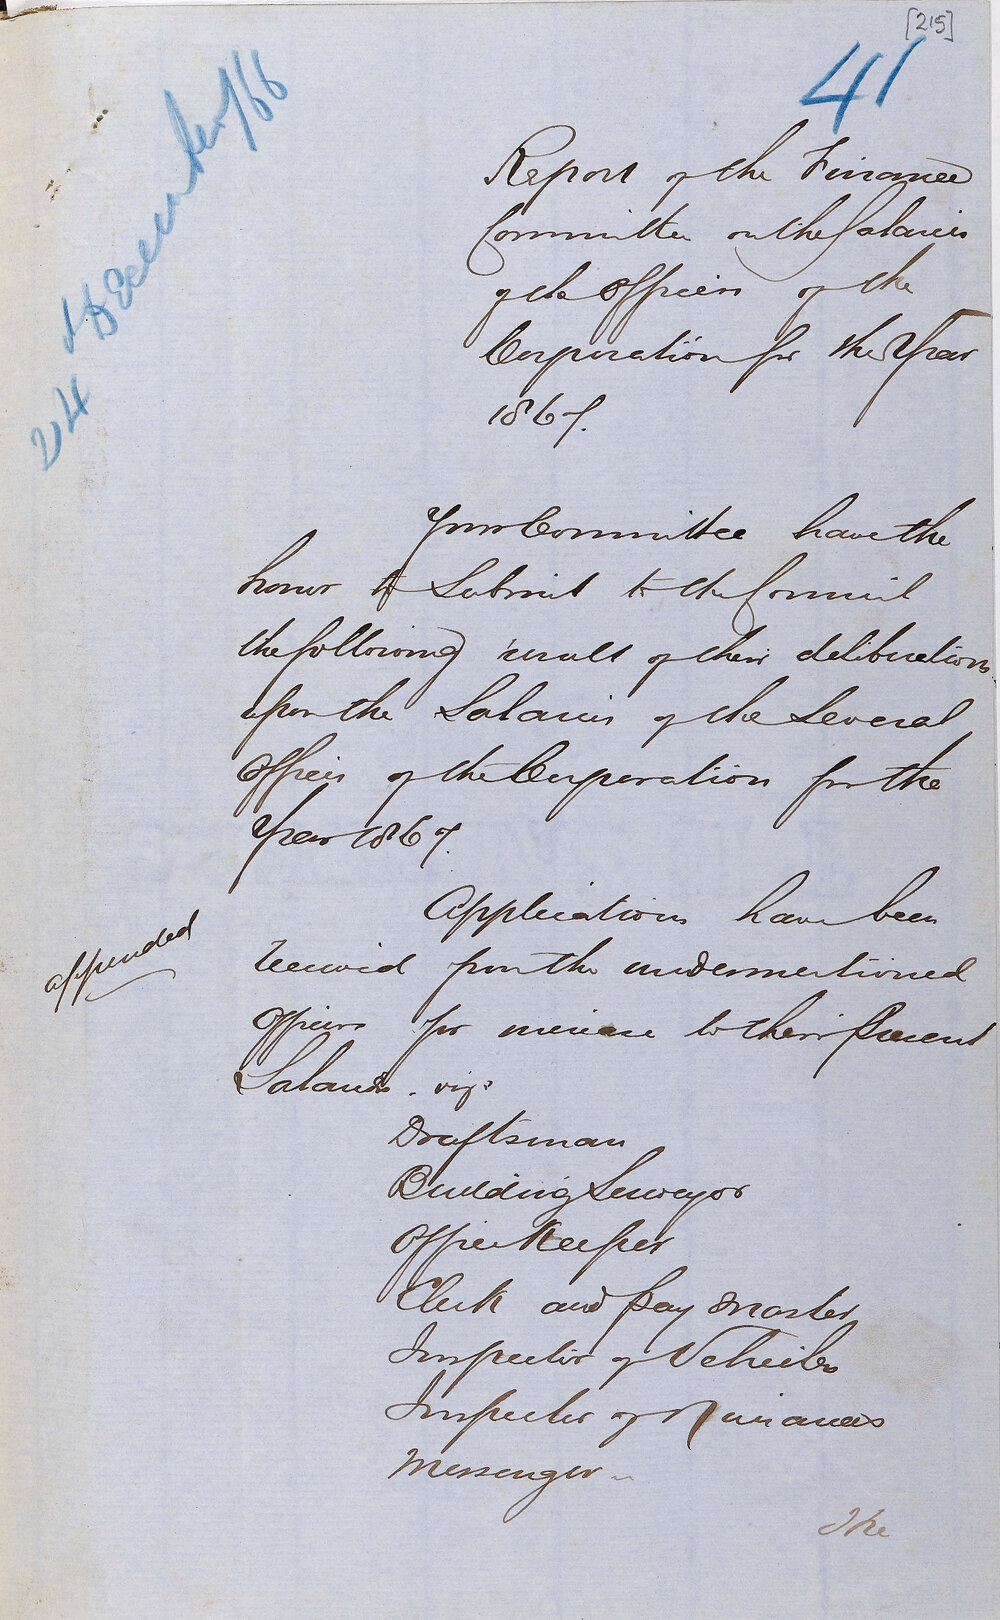 [215]
41
24 December/66
Report of the Finance
Committee on the Salaries
of the Officers of the
Corporation for the Year
1867.
Your Committee have the
honor to Submit to the Council
the following result of their deliberations
upon the Salaries of the Several
Officers of the Corporation for the
Year 1867.
Applications have been
appended
received from the undermentioned
Officers for increase to their present
Salaries. viz:
Draftsman
Building Surveyor
Office Keeper
Clerk and Pay Master
Inspector of Vehicles
Inspector of Nuisances
Messenger
The